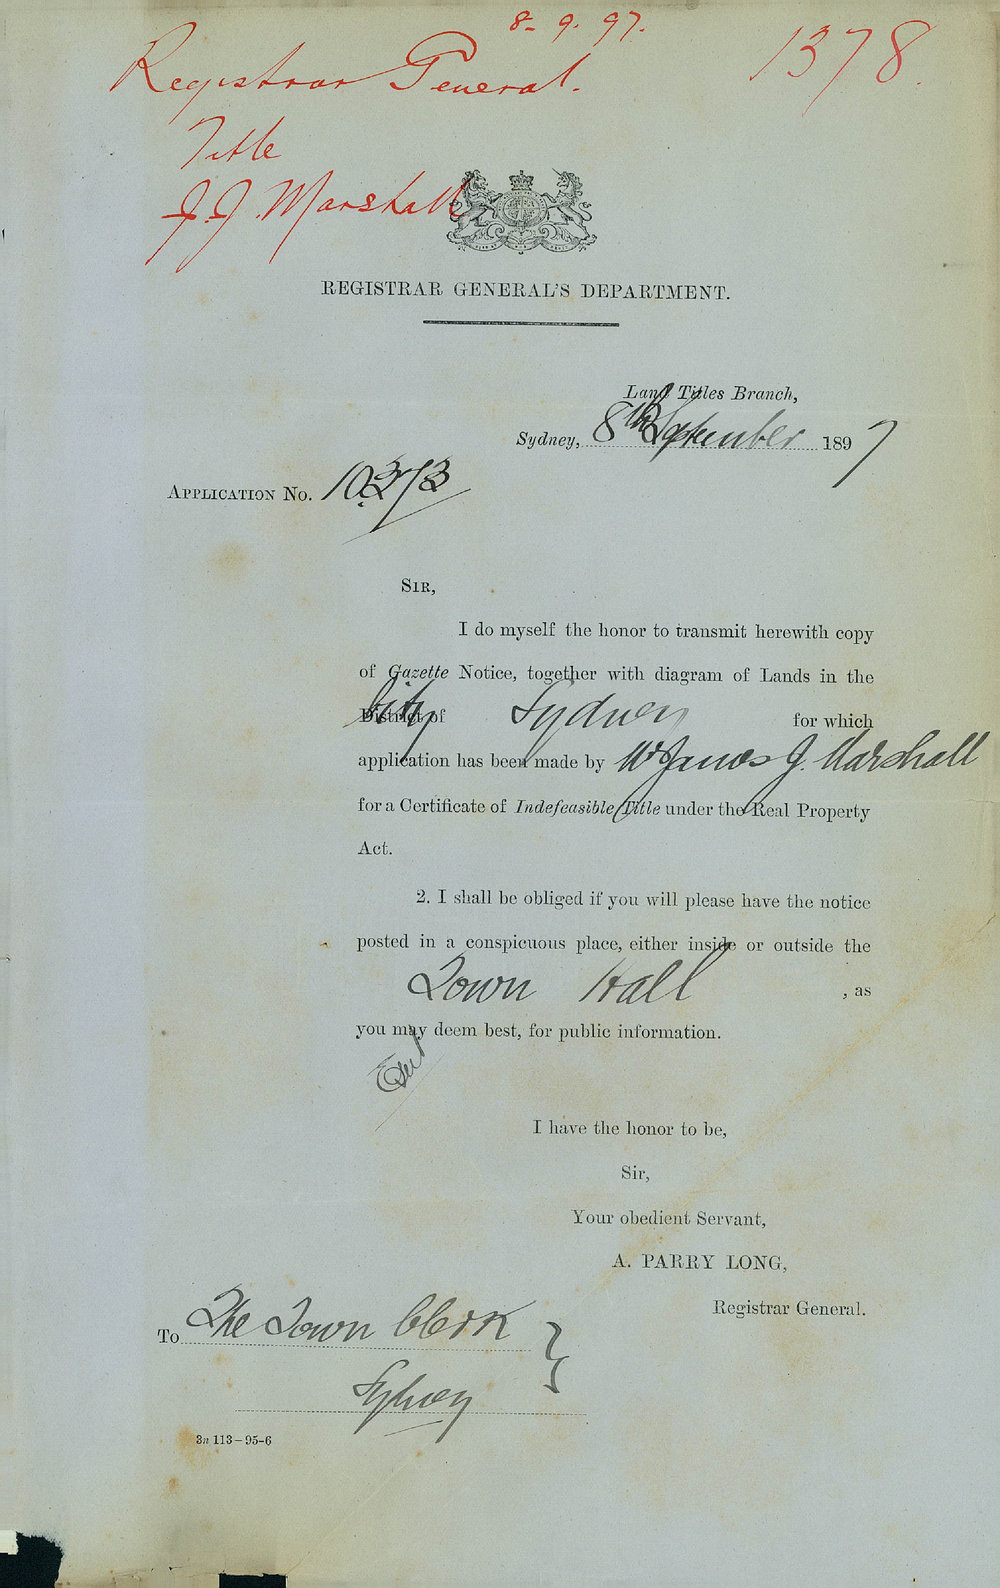 8. 9. 97.
1378.
Registrar General.
Title
J. J. Marshall
REGISTRAR GENERAL'S DEPARTMENT.
Land Titles Branch,
Sydney, 8th September 1897
APPLICATION No. 10373
SIR,
I do myself the honor to transmit herewith copy
of Gazette Notice, together with diagram of Lands in the
District of City Sydney for which
application has been made by Mr James J. Marshall
for a Certificate of Indefeasible Title under the Real Property
Act.
2. I shall be obliged if you will please have the notice
posted in a conspicuous place, either inside or outside the
Town Hall , as
you may deem best, for public information.
I have the honor to be,
Sir,
Your obedient Servant,
A. PARRY LONG,
Registrar General.
To The Town Clerk
Sydney
3n 113–95–6